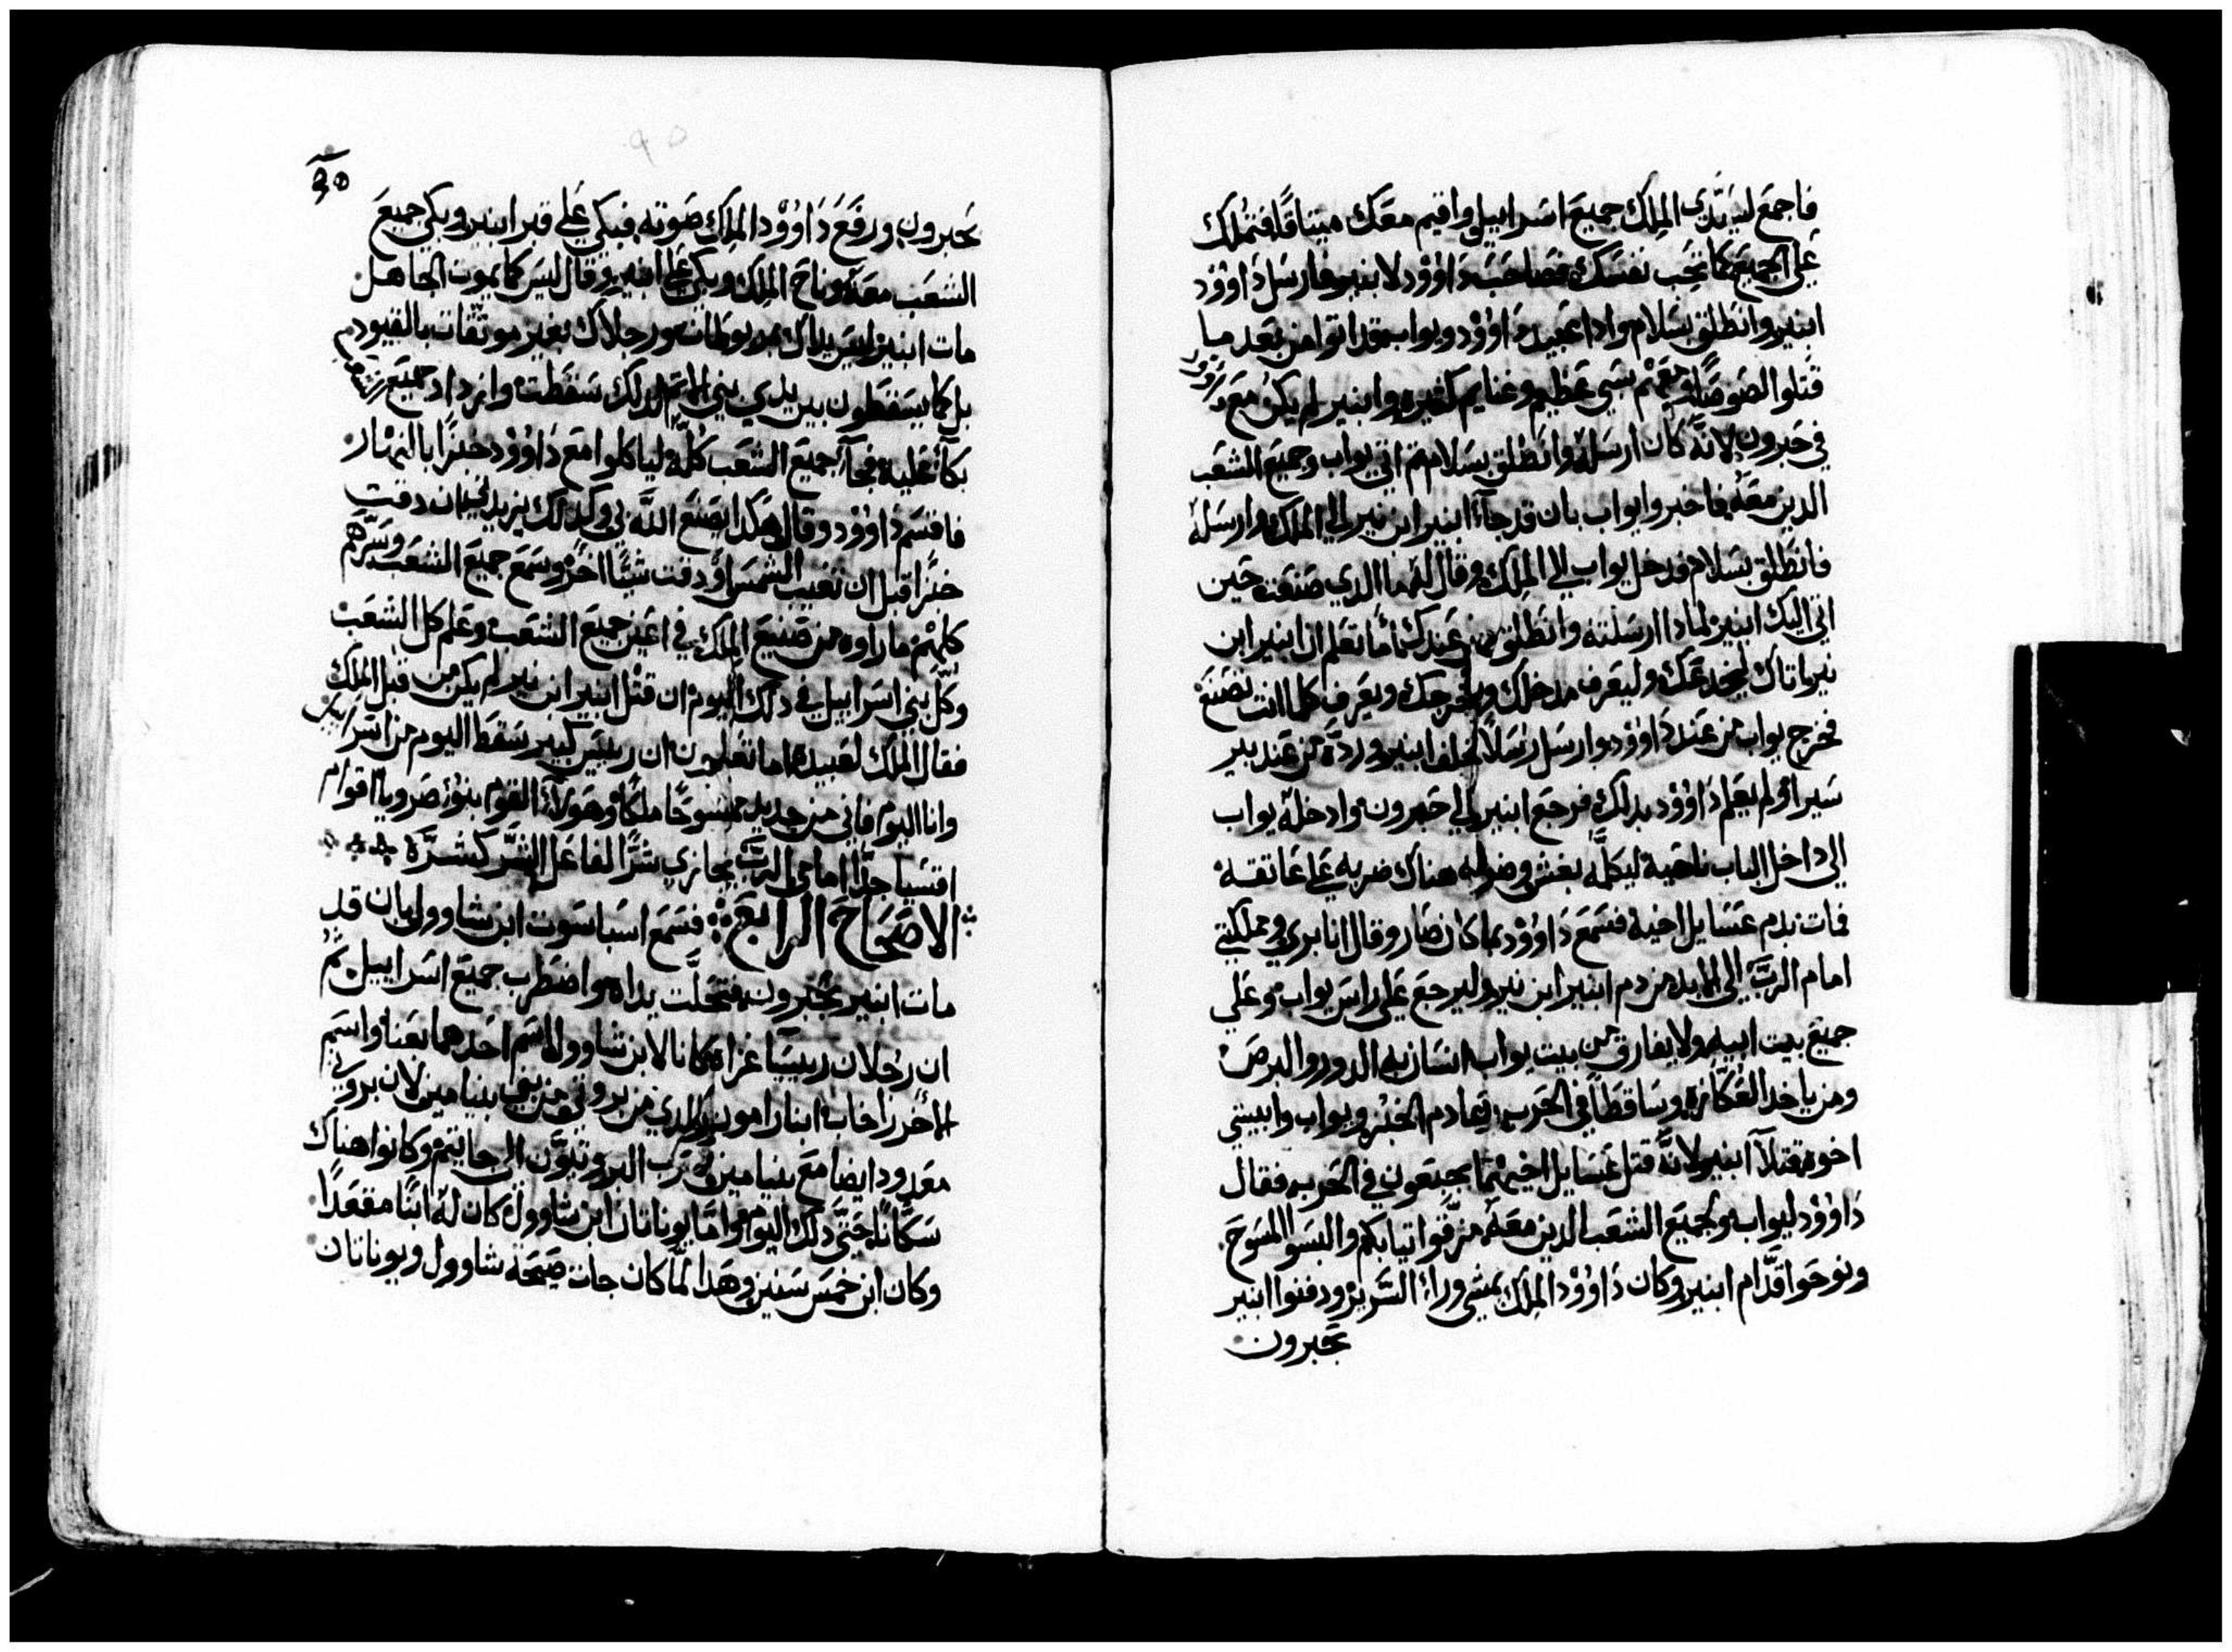 فاجمع لسيّدي الملك جميع اسراييل واقيم معك ميتاقًا فتملك
على الجميع كما تحب نفسك فصاحب داوود لابنير فارسل داوود
ابنير وانطلق بسلام واذا عبيد داوود ويواب قد اتوا من بعد ما
قتلوا اللصوص بشي عظيم وغنايم كتيره وابنير لم يكن مع داوود
في حبرون لانه كان ارسله وانطلق بسلام تم اتي يواب وجميع الشعب
الدين معه فاخبروا يواب بان قد جآء ابنير ابن نير الي الملك وارسله
فانطلق بسلام فدخل يواب الي الملك وقال له ما الدي صنعت حين
اتي اليك ابنير لمادا ارسلته وانطلق من عندك اما تعلم ان ابنير ابن
نير اتاك ليخدعك وليعرف مدخلك ومخرجك ويعرف كلما انت تصنع
فخرج يواب من عند داوود وارسل رسلًا خلف ابنير ورده من عند بير
سيرا ولم يعلم داوود بدلك فرجع ابنير الي حبرون وادخله يواب
الي داخل الباب ناحية ليكلمه بغش وضربه هناك ضربه علي عاتقه
فمات بدم عسايل اخيه فسمع داوود بما كان صار وقال انا بري ومملكتي
امام الرب الي الابد من دم ابنير ابن نير وليرجع علي راس يواب وعلي
جميع بيت ابيه ولا يفارق من بيت يواب انسان به الدور والبرص
ومن ياخد العكازه وساقطًا في الحرب وعادم الخبز ويواب وابيشي
اخوه قتلا ابنير لانه قتل عسايل اخيهما بجبعون في الحرب فقال
داوود ليواب ولجميع الشعب الدين معه مزّقوا تيابكم والبسوا المسوح
ونوحوا قدّام ابنير وكان داوود الملك يمشي ورآء السرير ودفنوا ابنير
بحبرون
٩٥
بحبرون ورفع داوود الملك صوته فبكي علي قبر ابنير وبكي جميع
الشعب معه وناح الملك وبكي علي ابنير وقال ليس كما يموت الجاهل
مات ابنير ليس يداك مربوطات ورجلاك بغير موتقات بالقيود
بل كما يسقطون بين يدي بني الاتم كدلك سقطت وازداد جميع الشعب
بكآء عليه فجآء جميع الشعب كله لياكلوا مع داوود خبزًا بالنهار
فاقسم داوود وقال هكدا يصنع الله بي وكدلك يزيدني ان دقت
خبزًا قبل ان تغيب الشمس او دقت شيًا اخر وسمع جميع الشعب وسرّهم
كلهم ما راوه من صنيع الملك في اعين جميع الشعب وعلم كل الشعب
وكل بني اسراييل في دلك اليوم ان قتل ابنير ابن نير لم يكن من قبل الملك
فقال الملك لعبيده اما تعلمون ان رييس كبير سقط اليوم من اسراييل
وانا اليوم فاني من جديد ممسوحًا ملكًا وهولآء القوم بنو صرويا اقوام
اقسيا جدًا امامي الرب يجازي شرًا لفاعل الشر كشره
الاصحاح الرابع فسمع اسباسوت ابن شاوول بان قد
مات ابنير بحبرون فتحلّت يداه واضطرب جميع اسراييل تم
ان رجلان رييسا غزاه كانا لابن شاوول اسم احدهما بعنا واسم
الاخر راخاب ابنا رامون الدي من بروتي من بني بنيامين لان بروتي
معدود ايضا مع بنيامين الي جاتيم وكانوا هناك
سكانًا حتي دلك اليوم واما يوناتان ابن شاوول كان له ابنًا مقعدًا
وكان ابن خمس سنين وهدا لمّا كان جات صيحة شاوول ويوناتان